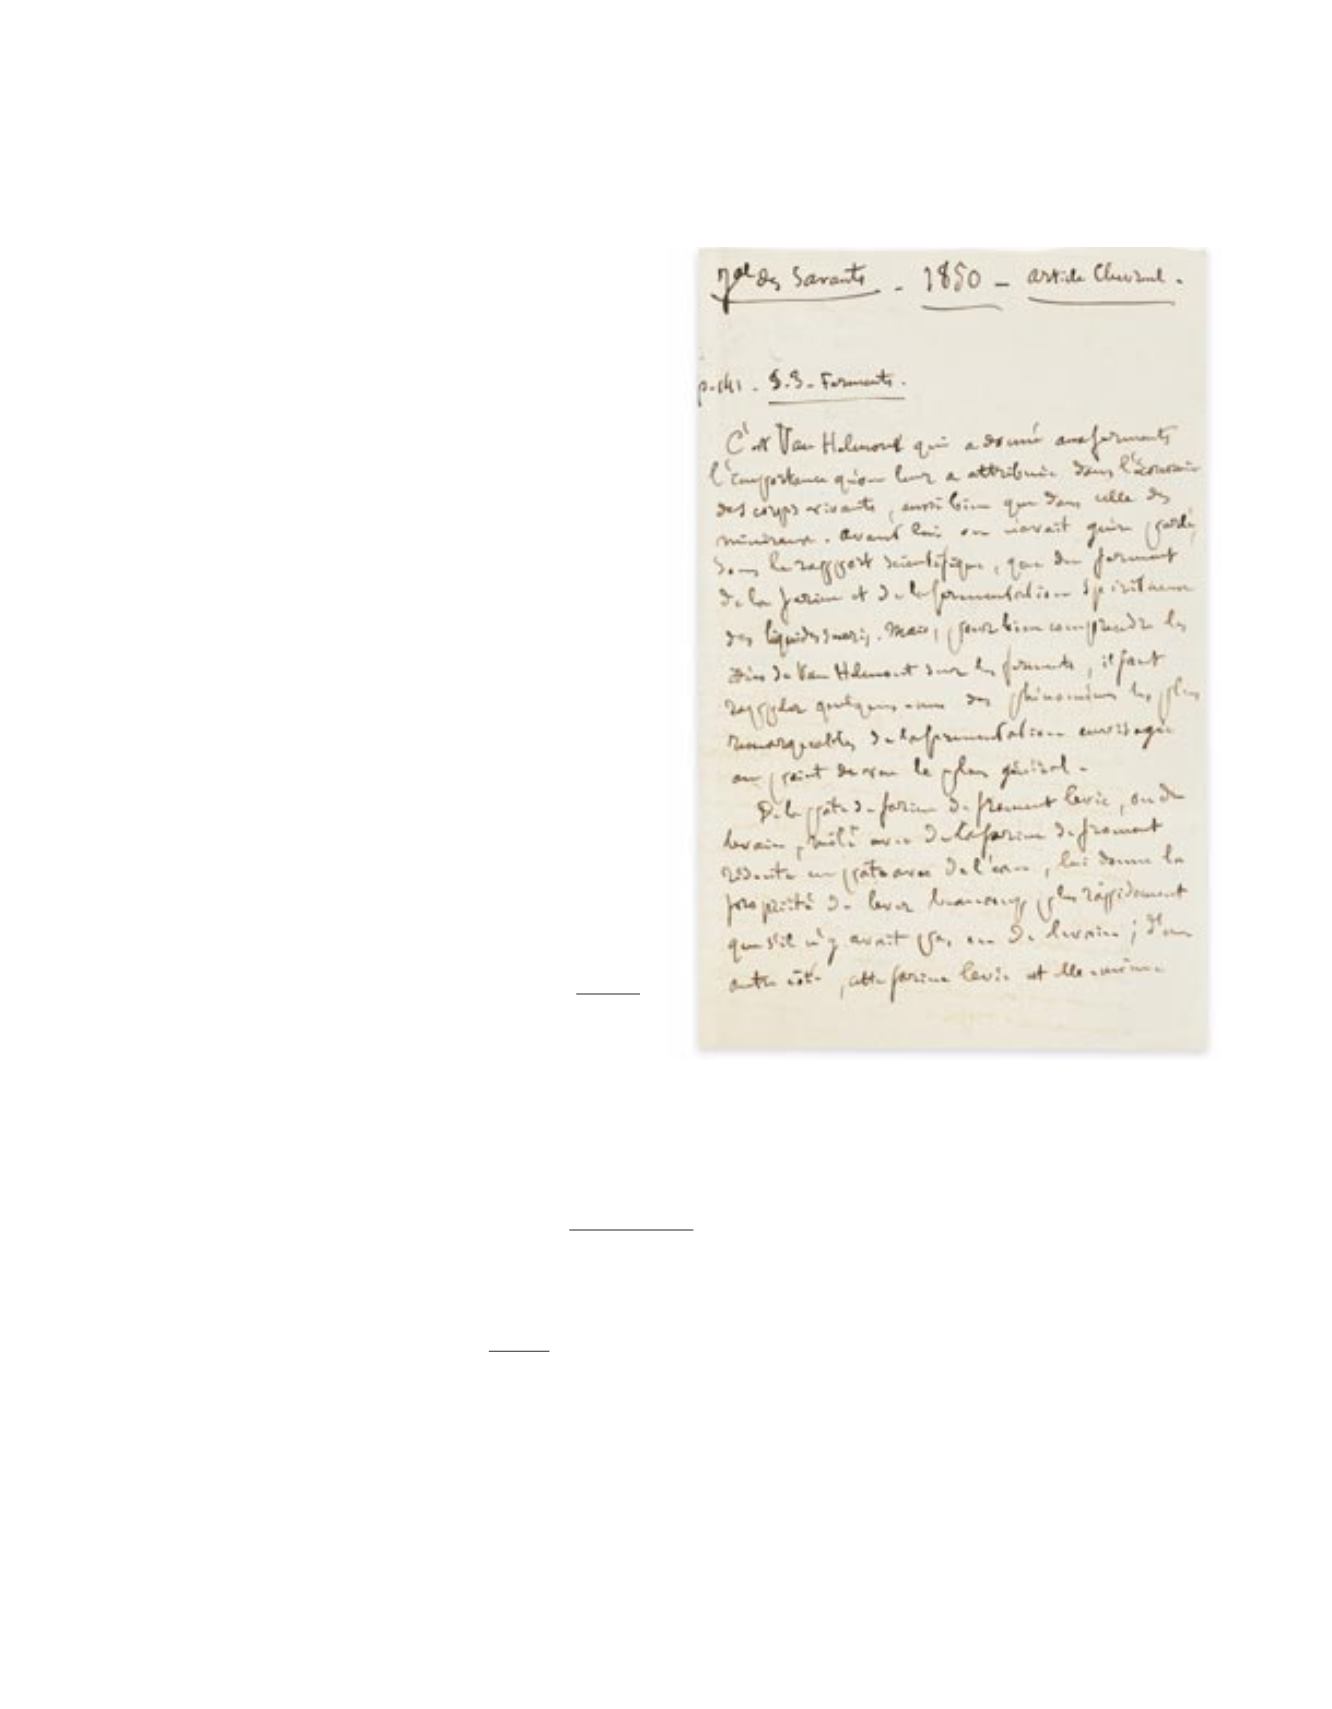 Jal des Savants - 1850 - article Chevreul.
p. 141 - §.3. Ferments.
C'est Van Helmont qui a donné aux ferments
l'importance qu'on leur a attribuée dans l'économie
des corps vivants, aussi bien que dans celle des
minéraux. Avant lui on n'avait guère parlé,
sous le rapport scientifique, que du ferment
de la farine et de la fermentation spiritueuse
des liquides sucrés. Mais, pour bien comprendre les
idées de Van Helmont sur les ferments, il faut
rappeler quelques-uns des phénomènes les plus
remarquables de la fermentation envisagée
au point de vue le plus général.
De la pâte de farine de froment levée, ou du
levain, mêlé avec de la farine de froment
réduite en pâte avec de l'eau, lui donne la
propriété de lever beaucoup plus rapidement
que s'il n'y avait pas eu de levain ; d'un
autre côté, cette farine levée est elle-même